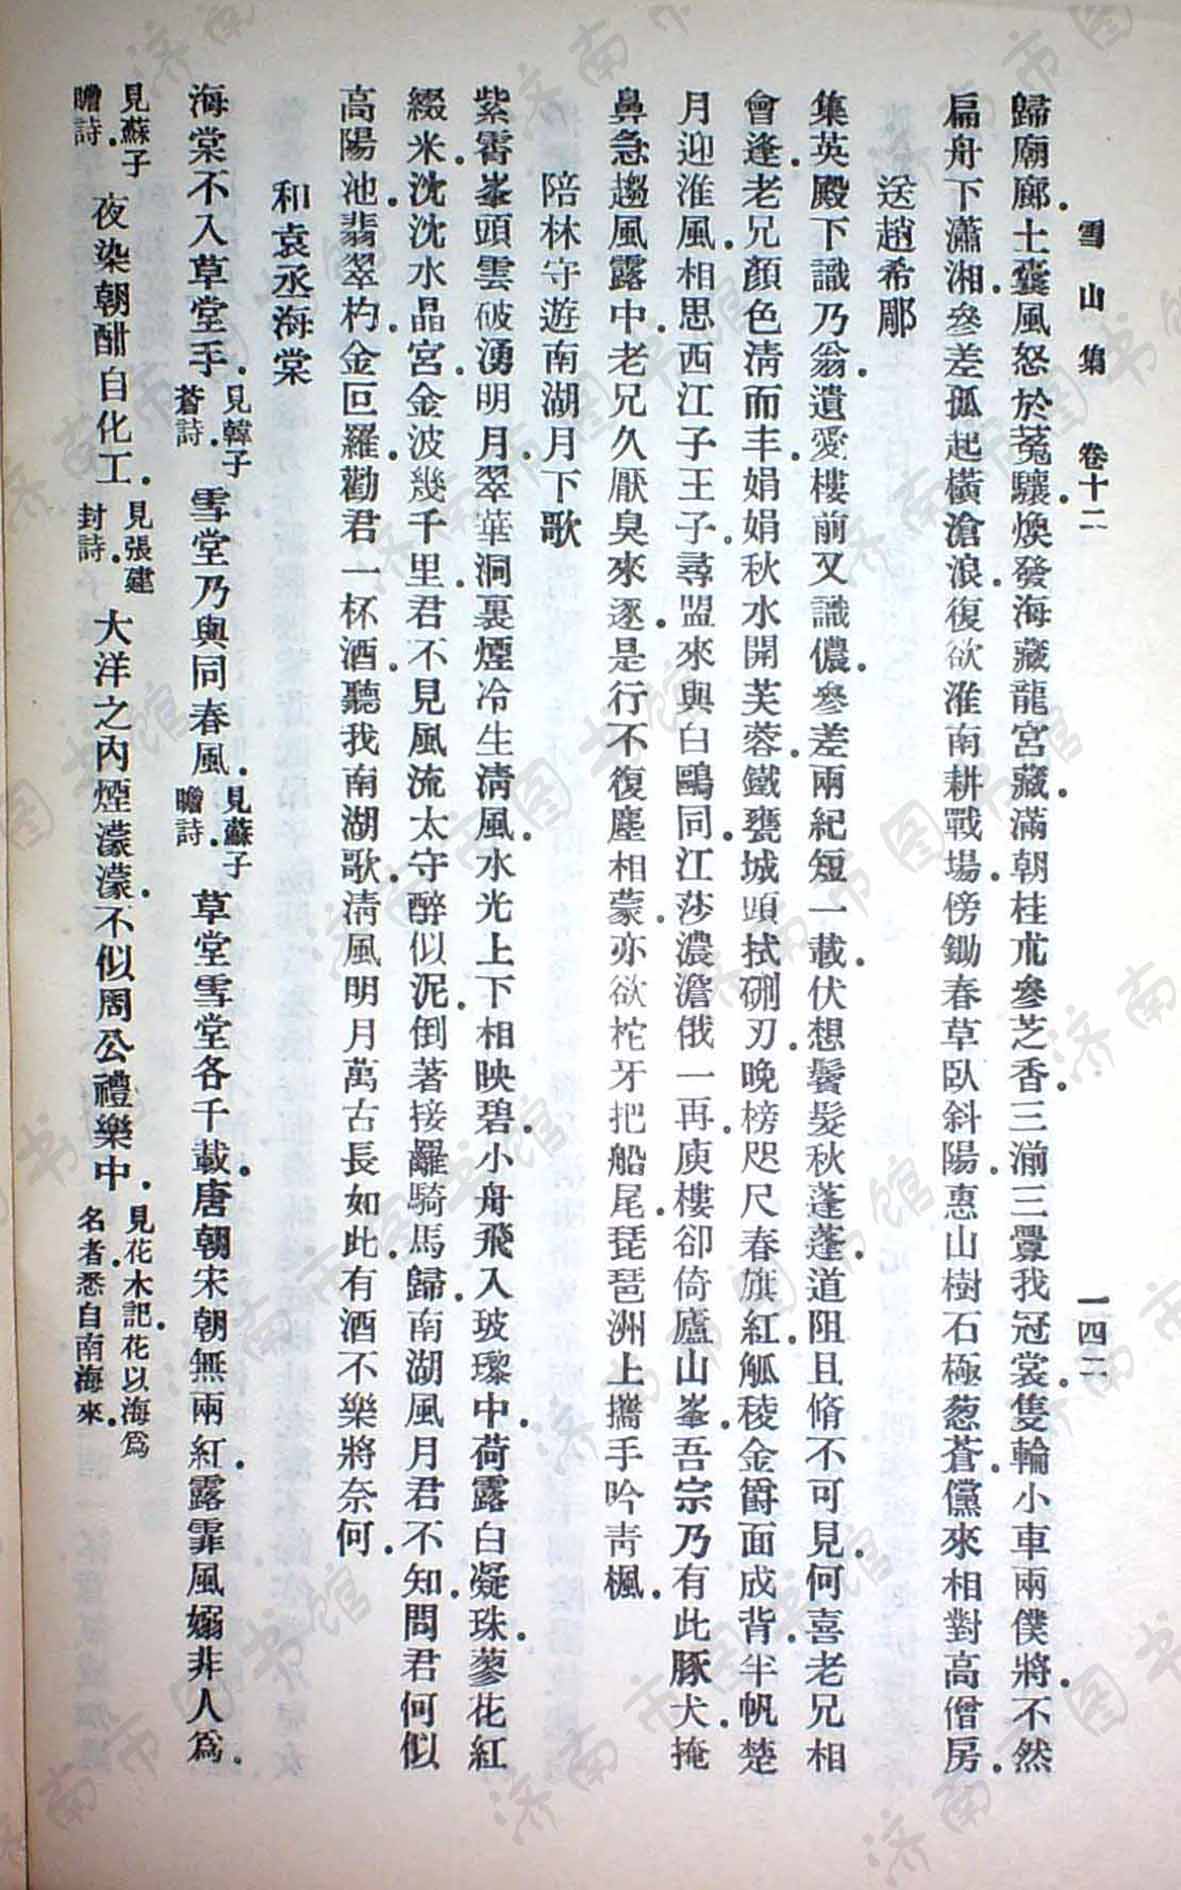 雪山集 卷十二 一四二
歸廟廊。土囊風怒於菟驤。煥發海藏龍宮藏。滿朝桂朮參芝香。三湔三釁我冠裳。隻輪小車兩僕將。不然
扁舟下瀟湘。參差孤起橫滄浪。復欲淮南耕戰場。傍鋤春草臥斜陽。惠山樹石極葱蒼。儻來相對高僧房。
送趙希郿
集英殿下識乃翁。遺愛樓前又識儂。參差兩紀短一載。伏想鬢髮秋蓬蓬。道阻且脩不可見。何喜老兄相
會逢。老兄顏色淸而丰。娟娟秋水開芙蓉。鐵甕城頭拭硎刃。晚榜咫尺春旗紅。觚稜金爵面成背。半帆楚
月迎淮風。相思西江子王子。尋盟來與白鷗同。江莎濃澹俄一再。庾樓卻倚廬山峯。吾宗乃有此豚犬。掩
鼻急趨風露中。老兄久厭臭來逐。是行不復塵相蒙。亦欲柁牙把船尾。琵琶洲上攜手吟靑楓。
陪林守遊南湖月下歌
紫霄峯頭雲破湧明月。翠華洞裏煙冷生淸風。水光上下相映碧。小舟飛入玻瓈中。荷露白凝珠。蓼花紅
綴米。沈沈水晶宮。金波幾千里。君不見風流太守醉似泥。倒著接䍦騎馬歸。南湖風月君不知。問君何似
高陽池。翡翠杓。金叵羅。勸君一杯酒。聽我南湖歌。淸風明月萬古長如此。有酒不樂將奈何。
和袁丞海棠
海棠不入草堂手。見韓子蒼詩。雪堂乃與同春風。見蘇子瞻詩。草堂雪堂各千載。唐朝宋朝無兩紅。露霏風嫋非人爲。
見蘇子瞻詩。夜染朝酣自化工。見張建封詩。大洋之內煙濛濛。不似周公禮樂中。見花木記。花以海爲名者悉自南海來。